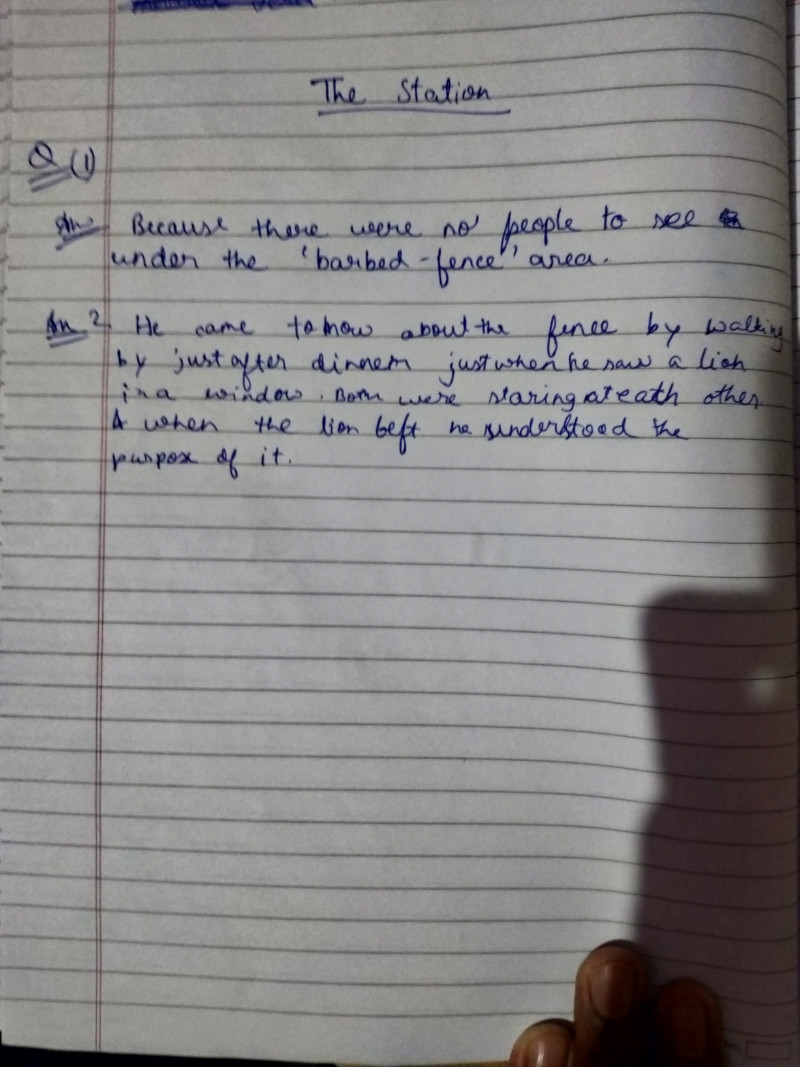 The Station
Q (1)
Ans Because there were no people to see
under the 'barbed-fence' area.
An 2. He came to know about the fence by walking
by just after dinner just when he saw a lion
in a window. Both were staring at eath other
& when the lion left he understood the
purpose of it.